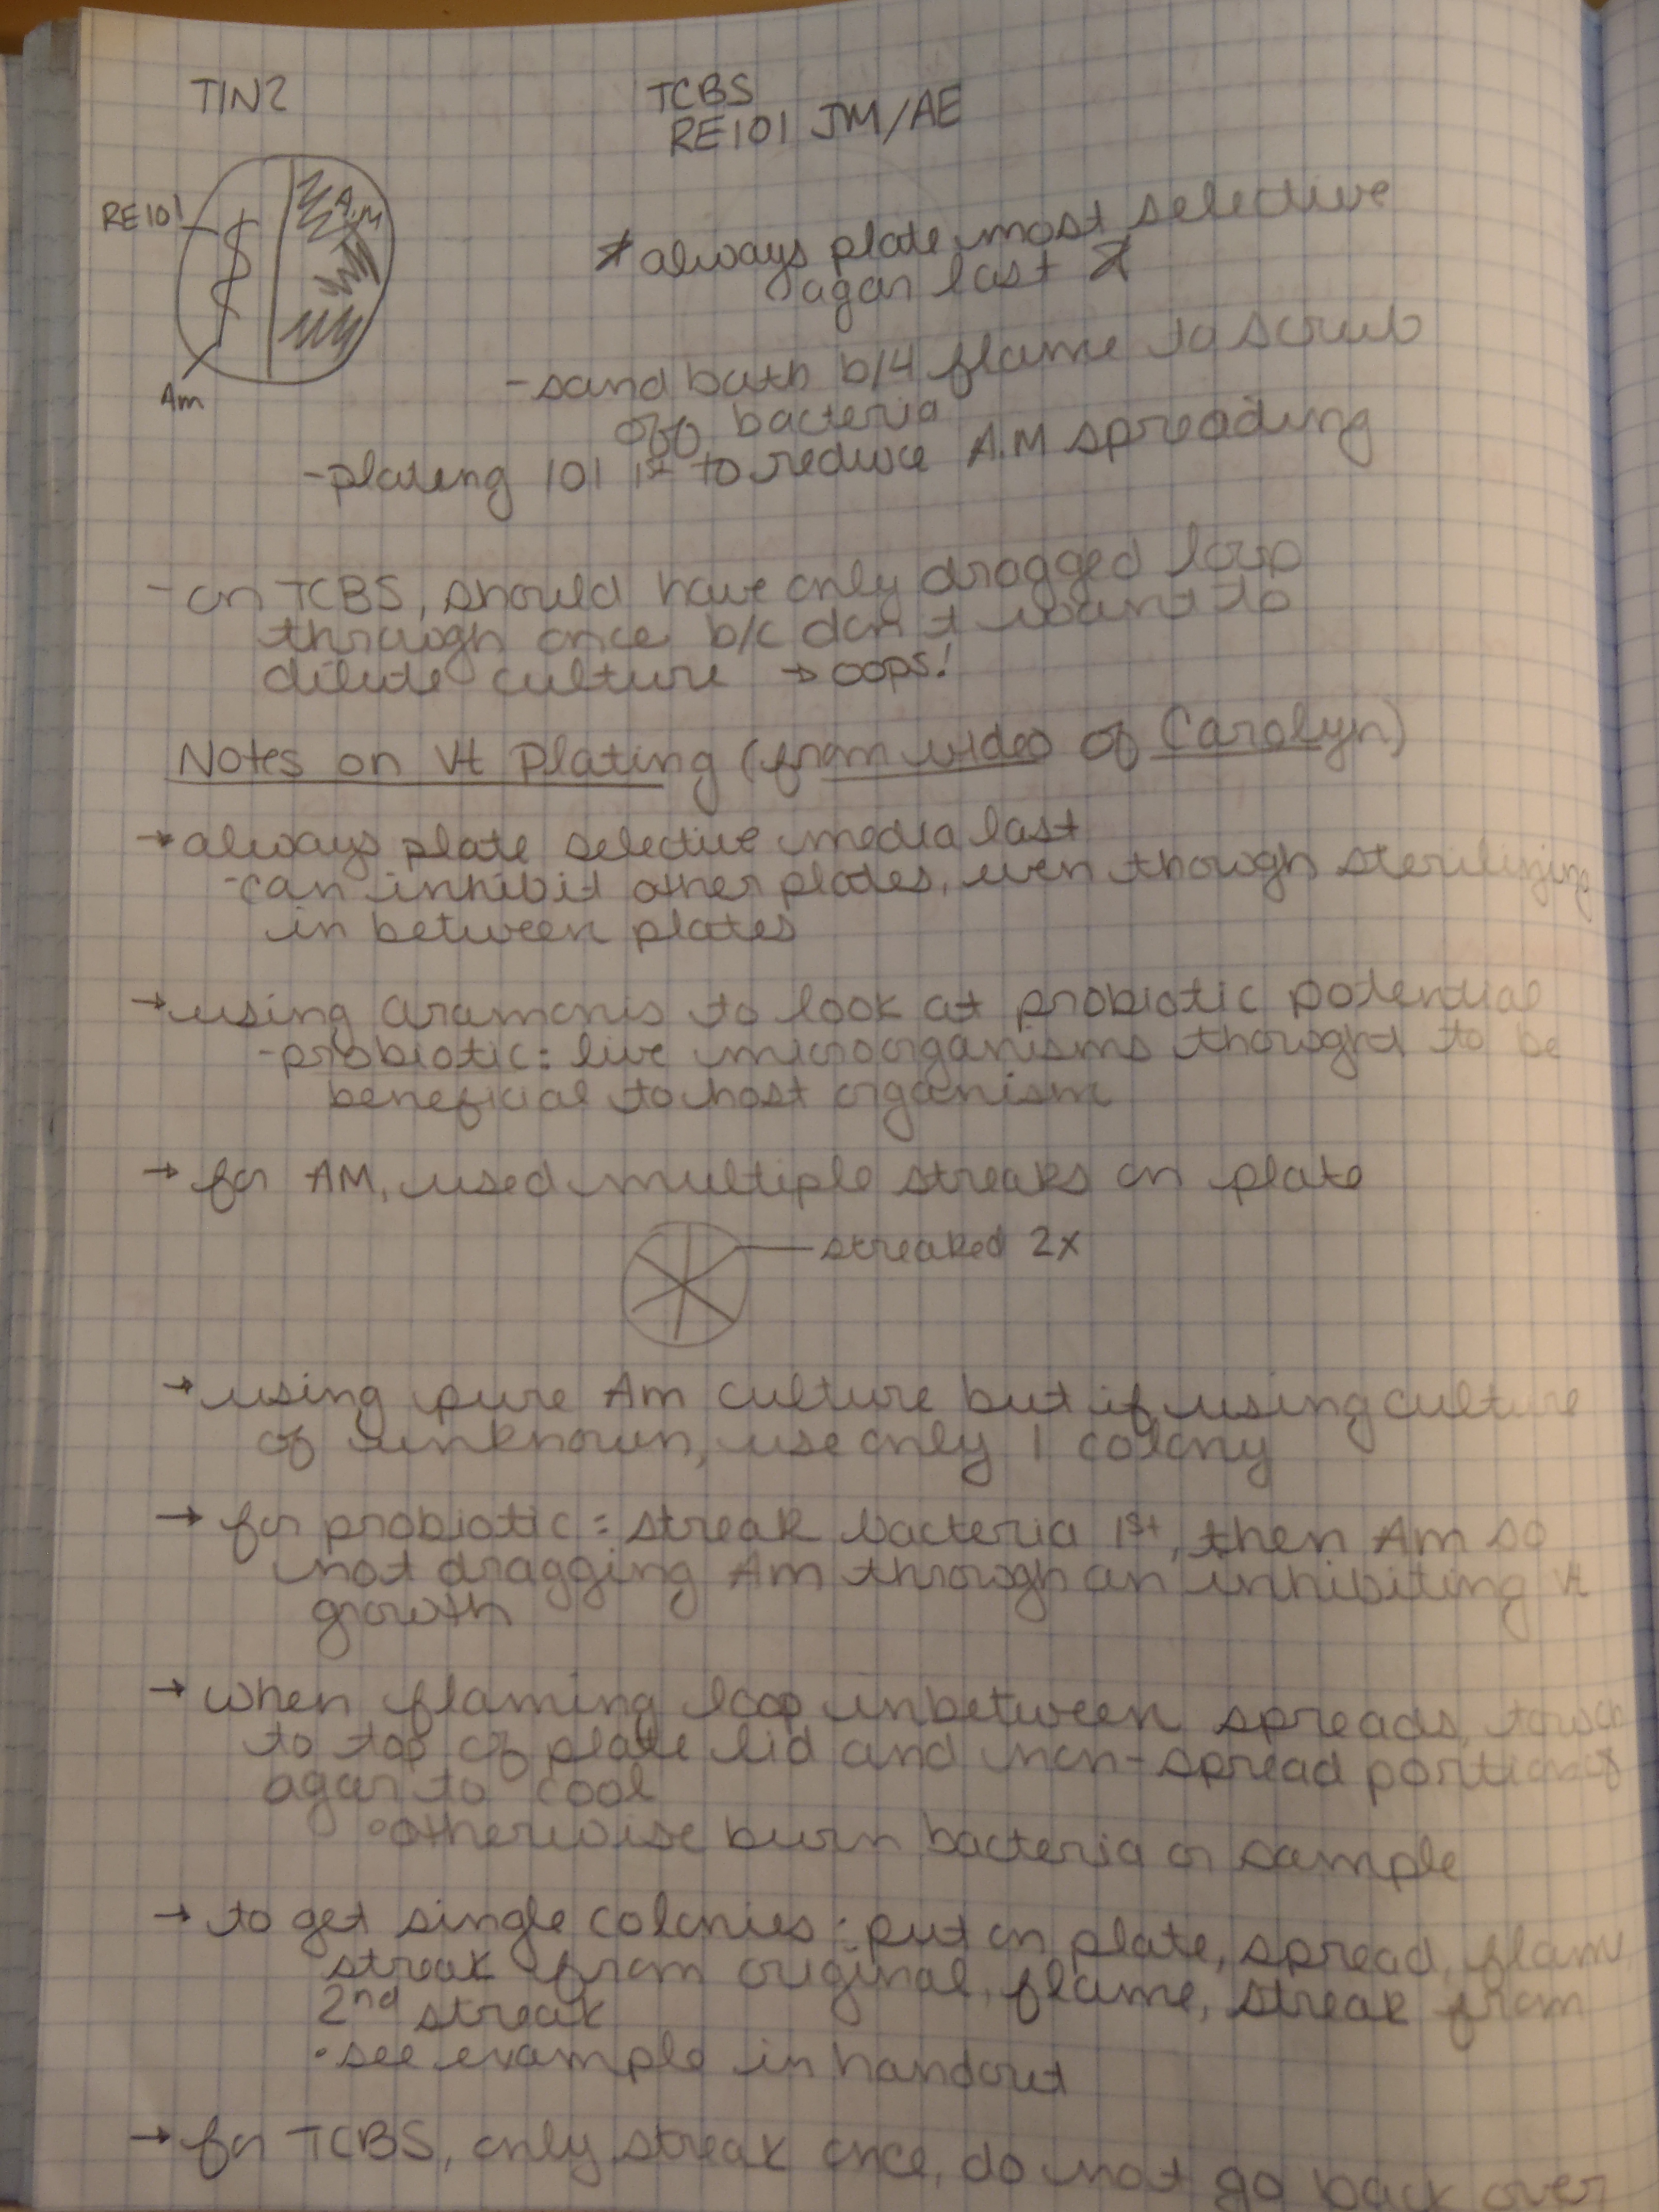 T1N2
TCBS
RE101 JM/AE
RE101
A.M
Am
*always plate most selective
agar last *
-sand bath b/4 flame to scrub
off bacteria
-plating 101 1st to reduce A.M spreading
-on TCBS, should have only dragged loop
through once b/c don't want to
dilute culture → oops!
Notes on Vt Plating (from video of Carolyn)
→always plate selective media last
-can inhibit other plates, even though sterilizing
in between plates
→using aramonis to look at probiotic potential
-probiotic: live microorganisms thought to be
beneficial to host organism
→ for AM, used multiple streaks on plate
streaked 2x
→using pure Am culture but if using culture
of unknown, use only 1 colony
→ for probiotic: streak bacteria 1st, then Am so
not dragging Am through an inhibiting Vt
growth
→ when flaming loop inbetween spreads, touch
to top of plate lid and non-spread portion of
agar to cool
•otherwise burn bacteria or sample
→ to get single colonies: put on plate, spread, flame,
streak from original, flame, streak from
2nd streak
•see example in handout
→ for TCBS, only streak once, do not go back over